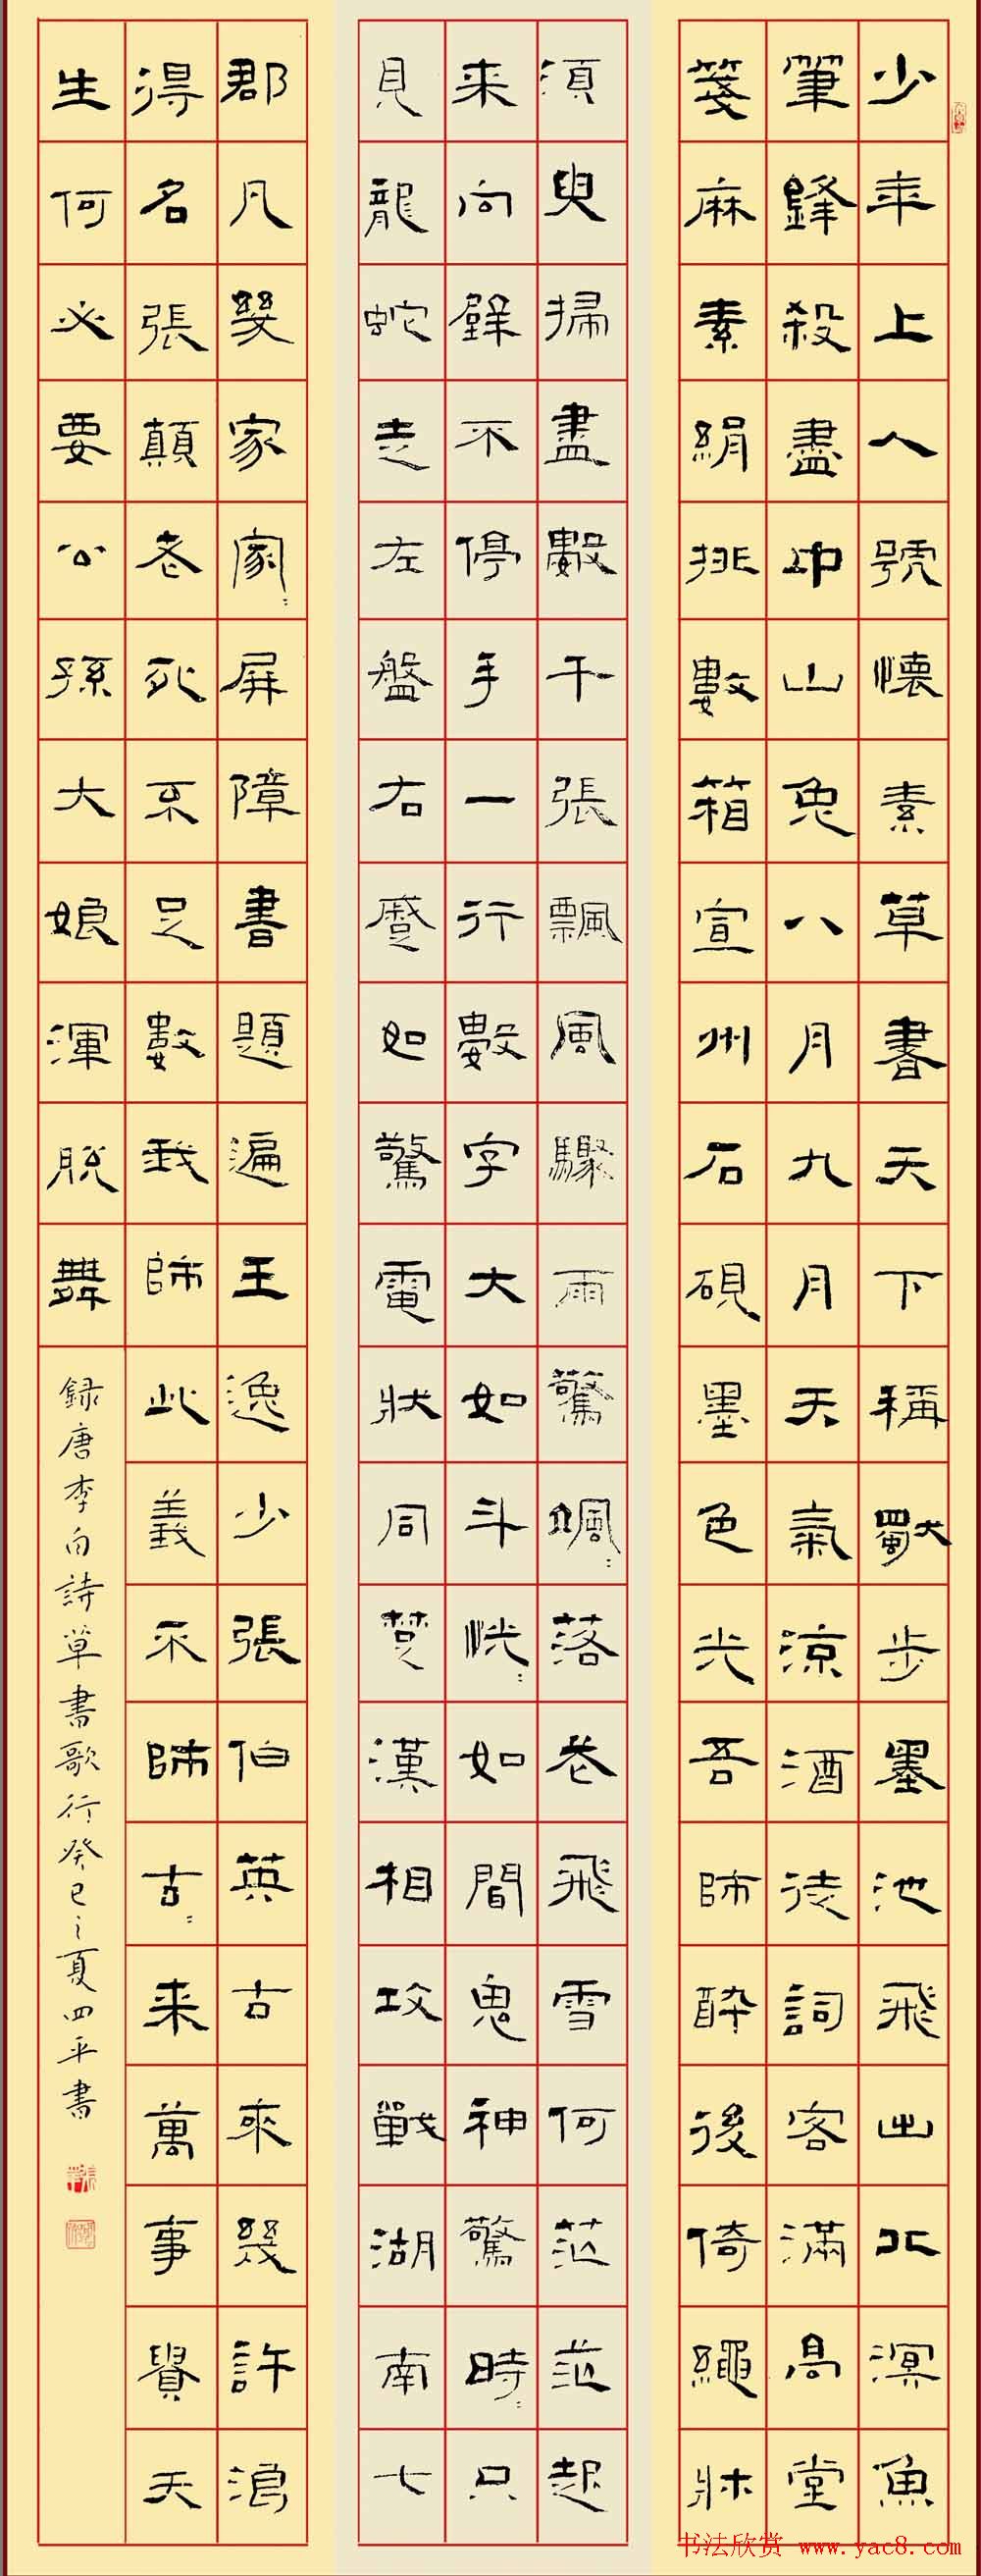 少年上人號懷素草書天下稱獨步墨池飛出北溟魚
筆鋒殺盡中山兔八月九月天氣涼酒徒詞客滿高堂
箋麻素絹排數箱宣州石硯墨色光吾師醉後倚繩牀
須臾掃盡數千張飄風驟雨驚颯〻落花飛雪何茫茫起
来向壁不停手一行數字大如斗怳〻如聞鬼神驚時〻只
見龍蛇走左盤右蹙如驚電狀同楚漢相攻戰湖南七
郡凡幾家家〻屏障書題遍王逸少張伯英古來幾許浪
得名張顛老死不足數我師此義不師古〻来萬事貴天
生何必要公孫大娘渾脫舞
録唐李白詩草書歌行癸巳之夏四平書
书法欣赏 www.yac8.com